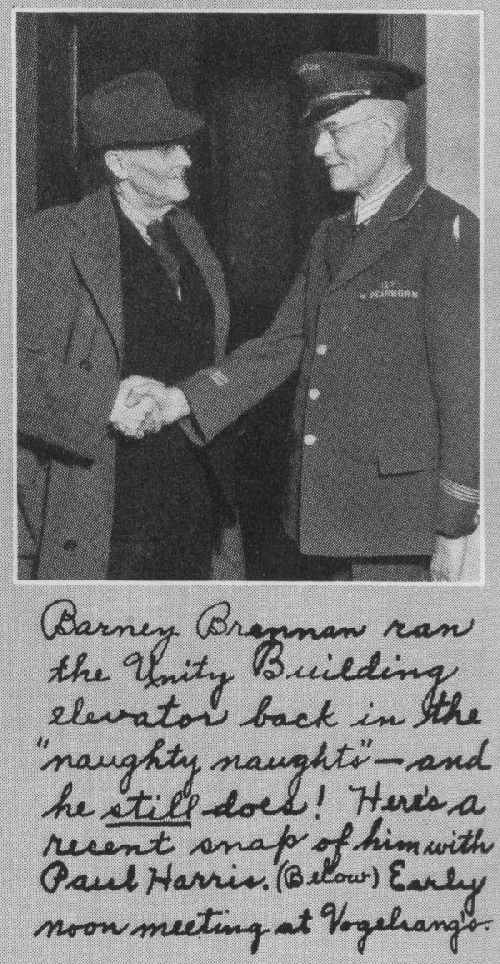 127
N. DEARBORN
Barney Brennan ran
the Unity Building
elevator back in the
"naughty naughts" — and
he still does! Here's a
recent snap of him with
Paul Harris. (Below) Early
noon meeting at Vogelsang's.